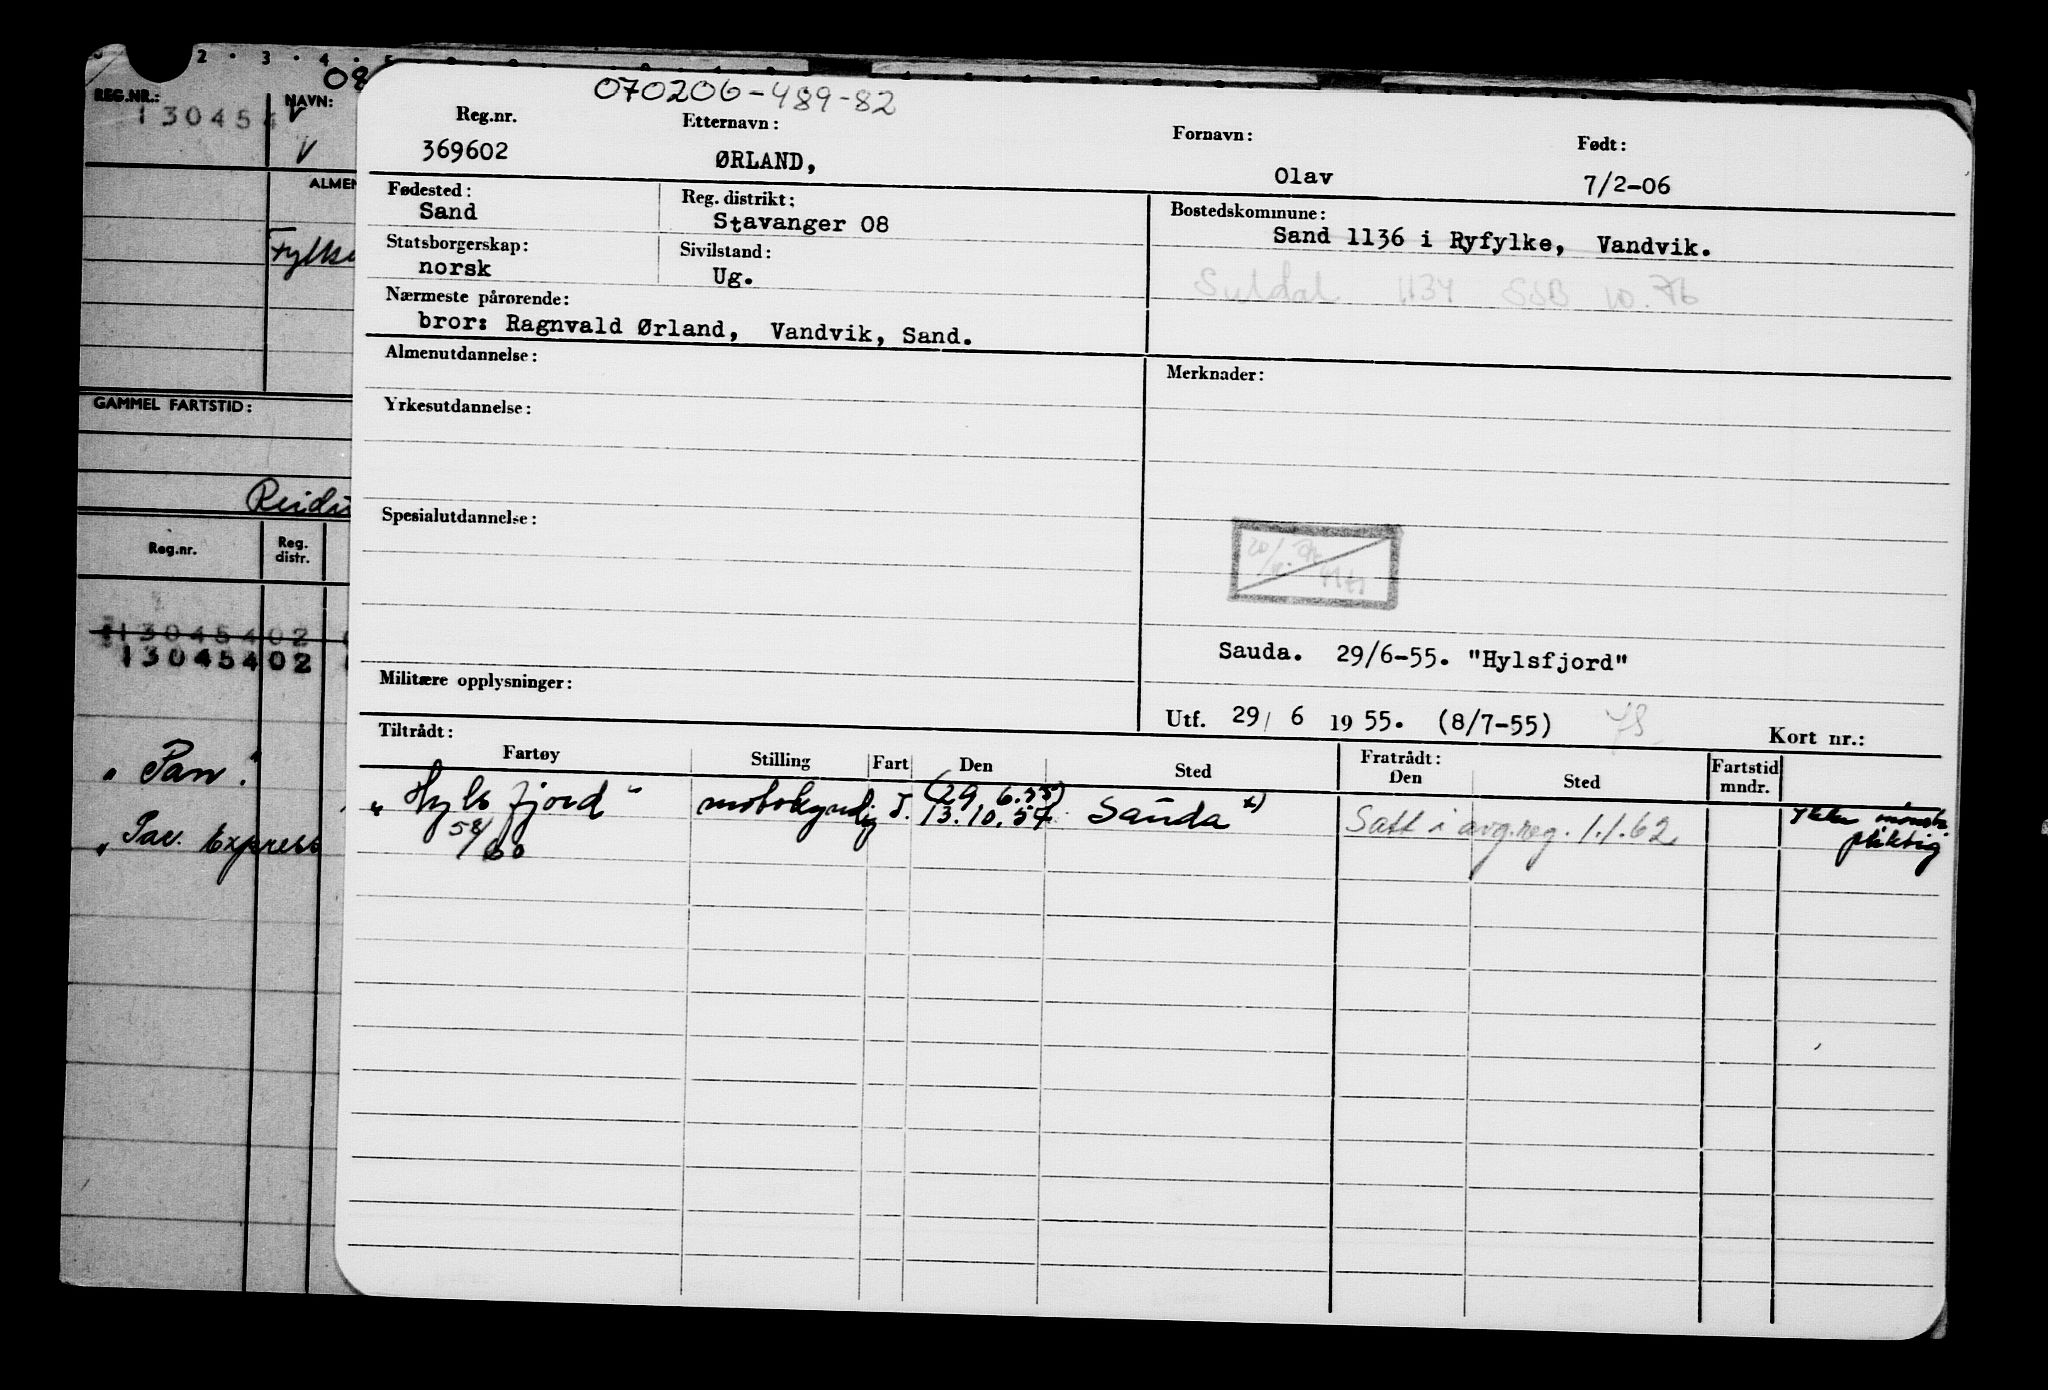 2 . 3 . 4 . 5
08
070206-489-82
REG.NR.:
NAVN:
130454
V
V
ALMEN
Fylke
GAMMEL FARTSTID:
Reg.nr.
Reg. distr.
1304540 2
13045402
"Pan".
"Pav. Express
Reg.nr.
369602
Etternavn:
ØRLAND,
Fornavn:
Olav
Født:
7/2-06
Fødested:
Sand
Reg. distrikt:
Stavanger 08
Bostedskommune:
Sand 1136 i Ryfylke, Vandvik.
Suldal 1134 SSB 10.76
Statsborgerskap:
norsk
Sivilstand:
Ug.
Nærmeste pårørende:
bror: Ragnvald Ørland, Vandvik, Sand.
Almenutdannelse:
Merknader:
Yrkesutdannelse:
Spesialutdannelse:
Sauda. 29/6-55. "Hylsfjord"
Militære opplysninger:
Utf. 29/ 6 1955. (8/7-55)
Kort nr.:
Tiltrådt:
Fartøy
Stilling
Fart
Den
Sted
Fratrådt:
Den
Sted
Fartstid mndr.
"Hylsfjord"
motokyndig
(29.6.55)
13.10.54
Sauda x)
Satt i avg.reg. 1.1.62
Ikke mønstr.
pliktig
58/60